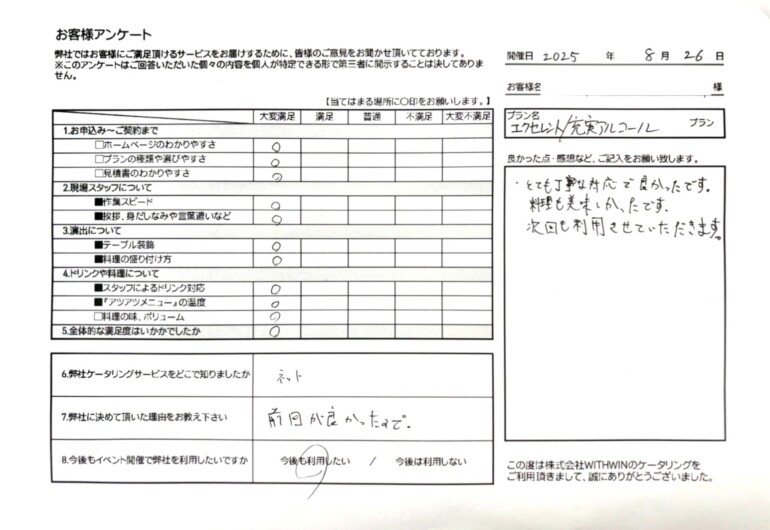 お客様アンケート
弊社ではお客様にご満足頂けるサービスをお届けするために、皆様のご意見をお聞かせ頂いております。
※このアンケートはご回答いただいた個々の内容を個人が特定できる形で第三者に開示することは決してありません。
開催日 2025 年 8 月 26 日
お客様名 様
【当てはまる場所に〇印をお願いします。】
大変満足 満足 普通 不満足 大変不満足
1.お申込み～ご契約まで
□ホームページのわかりやすさ ○
□プランの種類や選びやすさ ○
□見積書のわかりやすさ ○
2.現場スタッフについて
■作業スピード ○
■挨拶、身だしなみや言葉遣いなど ○
3.演出について
■テーブル装飾 ○
■料理の盛り付け方 ○
4.ドリンクや料理について
■スタッフによるドリンク対応 ○
■『アツアツメニュー』の温度 ○
□料理の味、ボリューム ○
5.全体的な満足度はいかがでしたか ○
6.弊社ケータリングサービスをどこで知りましたか ネット
7.弊社に決めて頂いた理由をお教え下さい 前回が良かったので。
8.今後もイベント開催で弊社を利用したいですか 今後も利用したい / 今後は利用しない
プラン名
エクセレント/充実アルコール プラン
良かった点・感想など、ご記入をお願い致します。
・とても丁寧な対応で良かったです。
料理も美味しかったです。
次回も利用させていただきます。
この度は株式会社WITHWINのケータリングを
ご利用頂きまして、誠にありがとうございました。